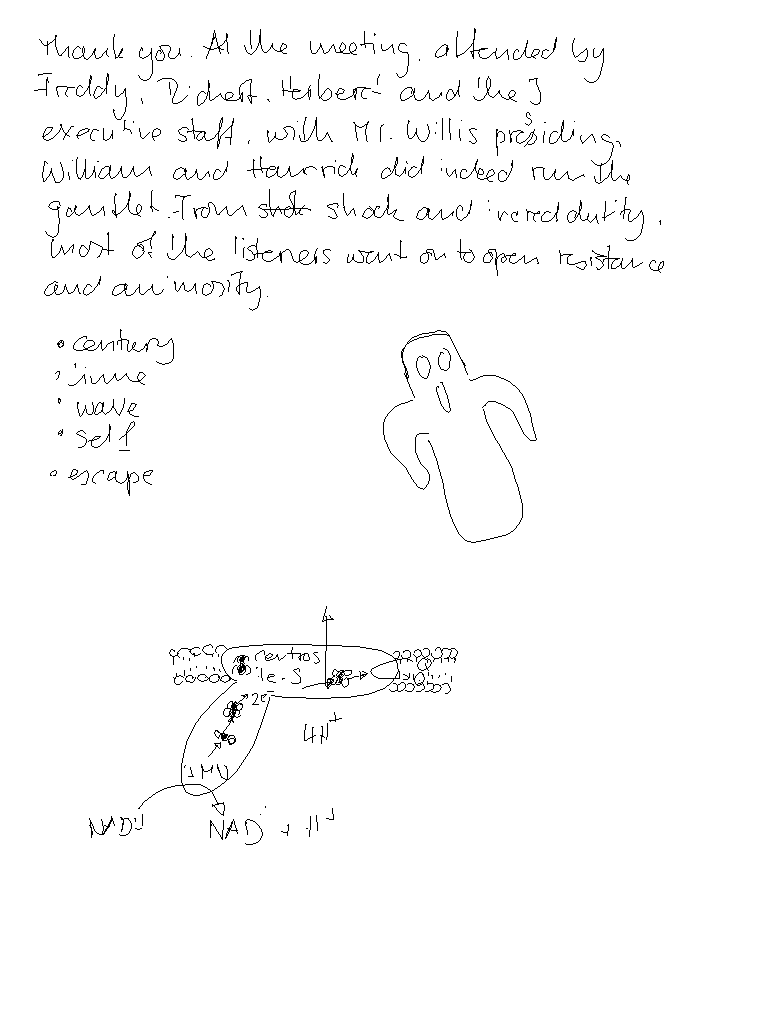 Thank you. At the meeting, attended by
Freddy, Richert, Herbert and the 3
executive staff, with Mr. Willis presiding,
William and Hamrick did indeed run the
gauntlet. From shock and incredulity,
most of the listeners want on to open resistance
and animosity.
• century
• wave
• self
• escape
Fe-S
2e-
4H+
NAD + H+